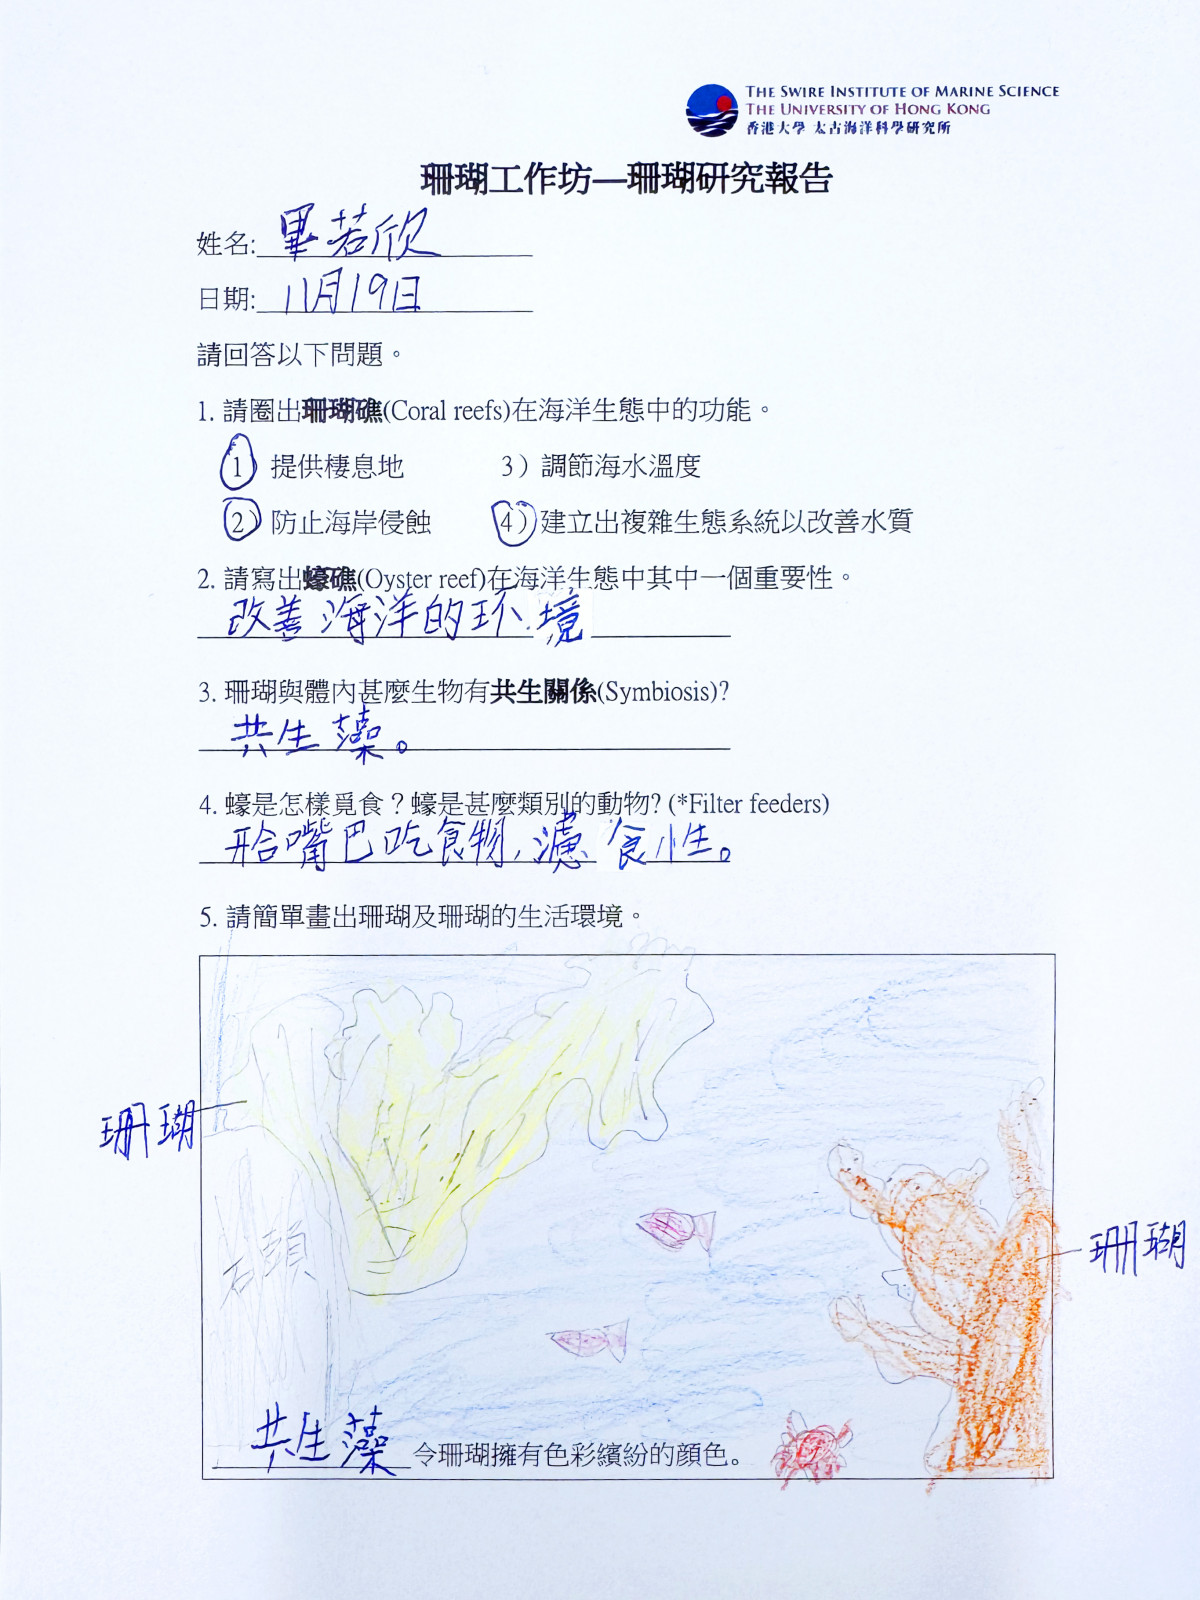 THE SWIRE INSTITUTE OF MARINE SCIENCE
THE UNIVERSITY OF HONG KONG
香港大學 太古海洋科學研究所
珊瑚工作坊—珊瑚研究報告
姓名: 畢若欣
日期: 11月19日
請回答以下問題。
1. 請圈出珊瑚礁(Coral reefs)在海洋生態中的功能。
1) 提供棲息地 3) 調節海水溫度
2) 防止海岸侵蝕 4) 建立出複雜生態系統以改善水質
2. 請寫出蠔礁(Oyster reef)在海洋生態中其中一個重要性。
改善海洋的环境
3. 珊瑚與體內甚麼生物有共生關係(Symbiosis)?
共生藻。
4. 蠔是怎樣覓食?蠔是甚麼類別的動物? (*Filter feeders)
嘴巴吃食物,濾食性。
5. 請簡單畫出珊瑚及珊瑚的生活環境。
珊瑚
珊瑚
石頭
共生藻 令珊瑚擁有色彩繽紛的顏色。